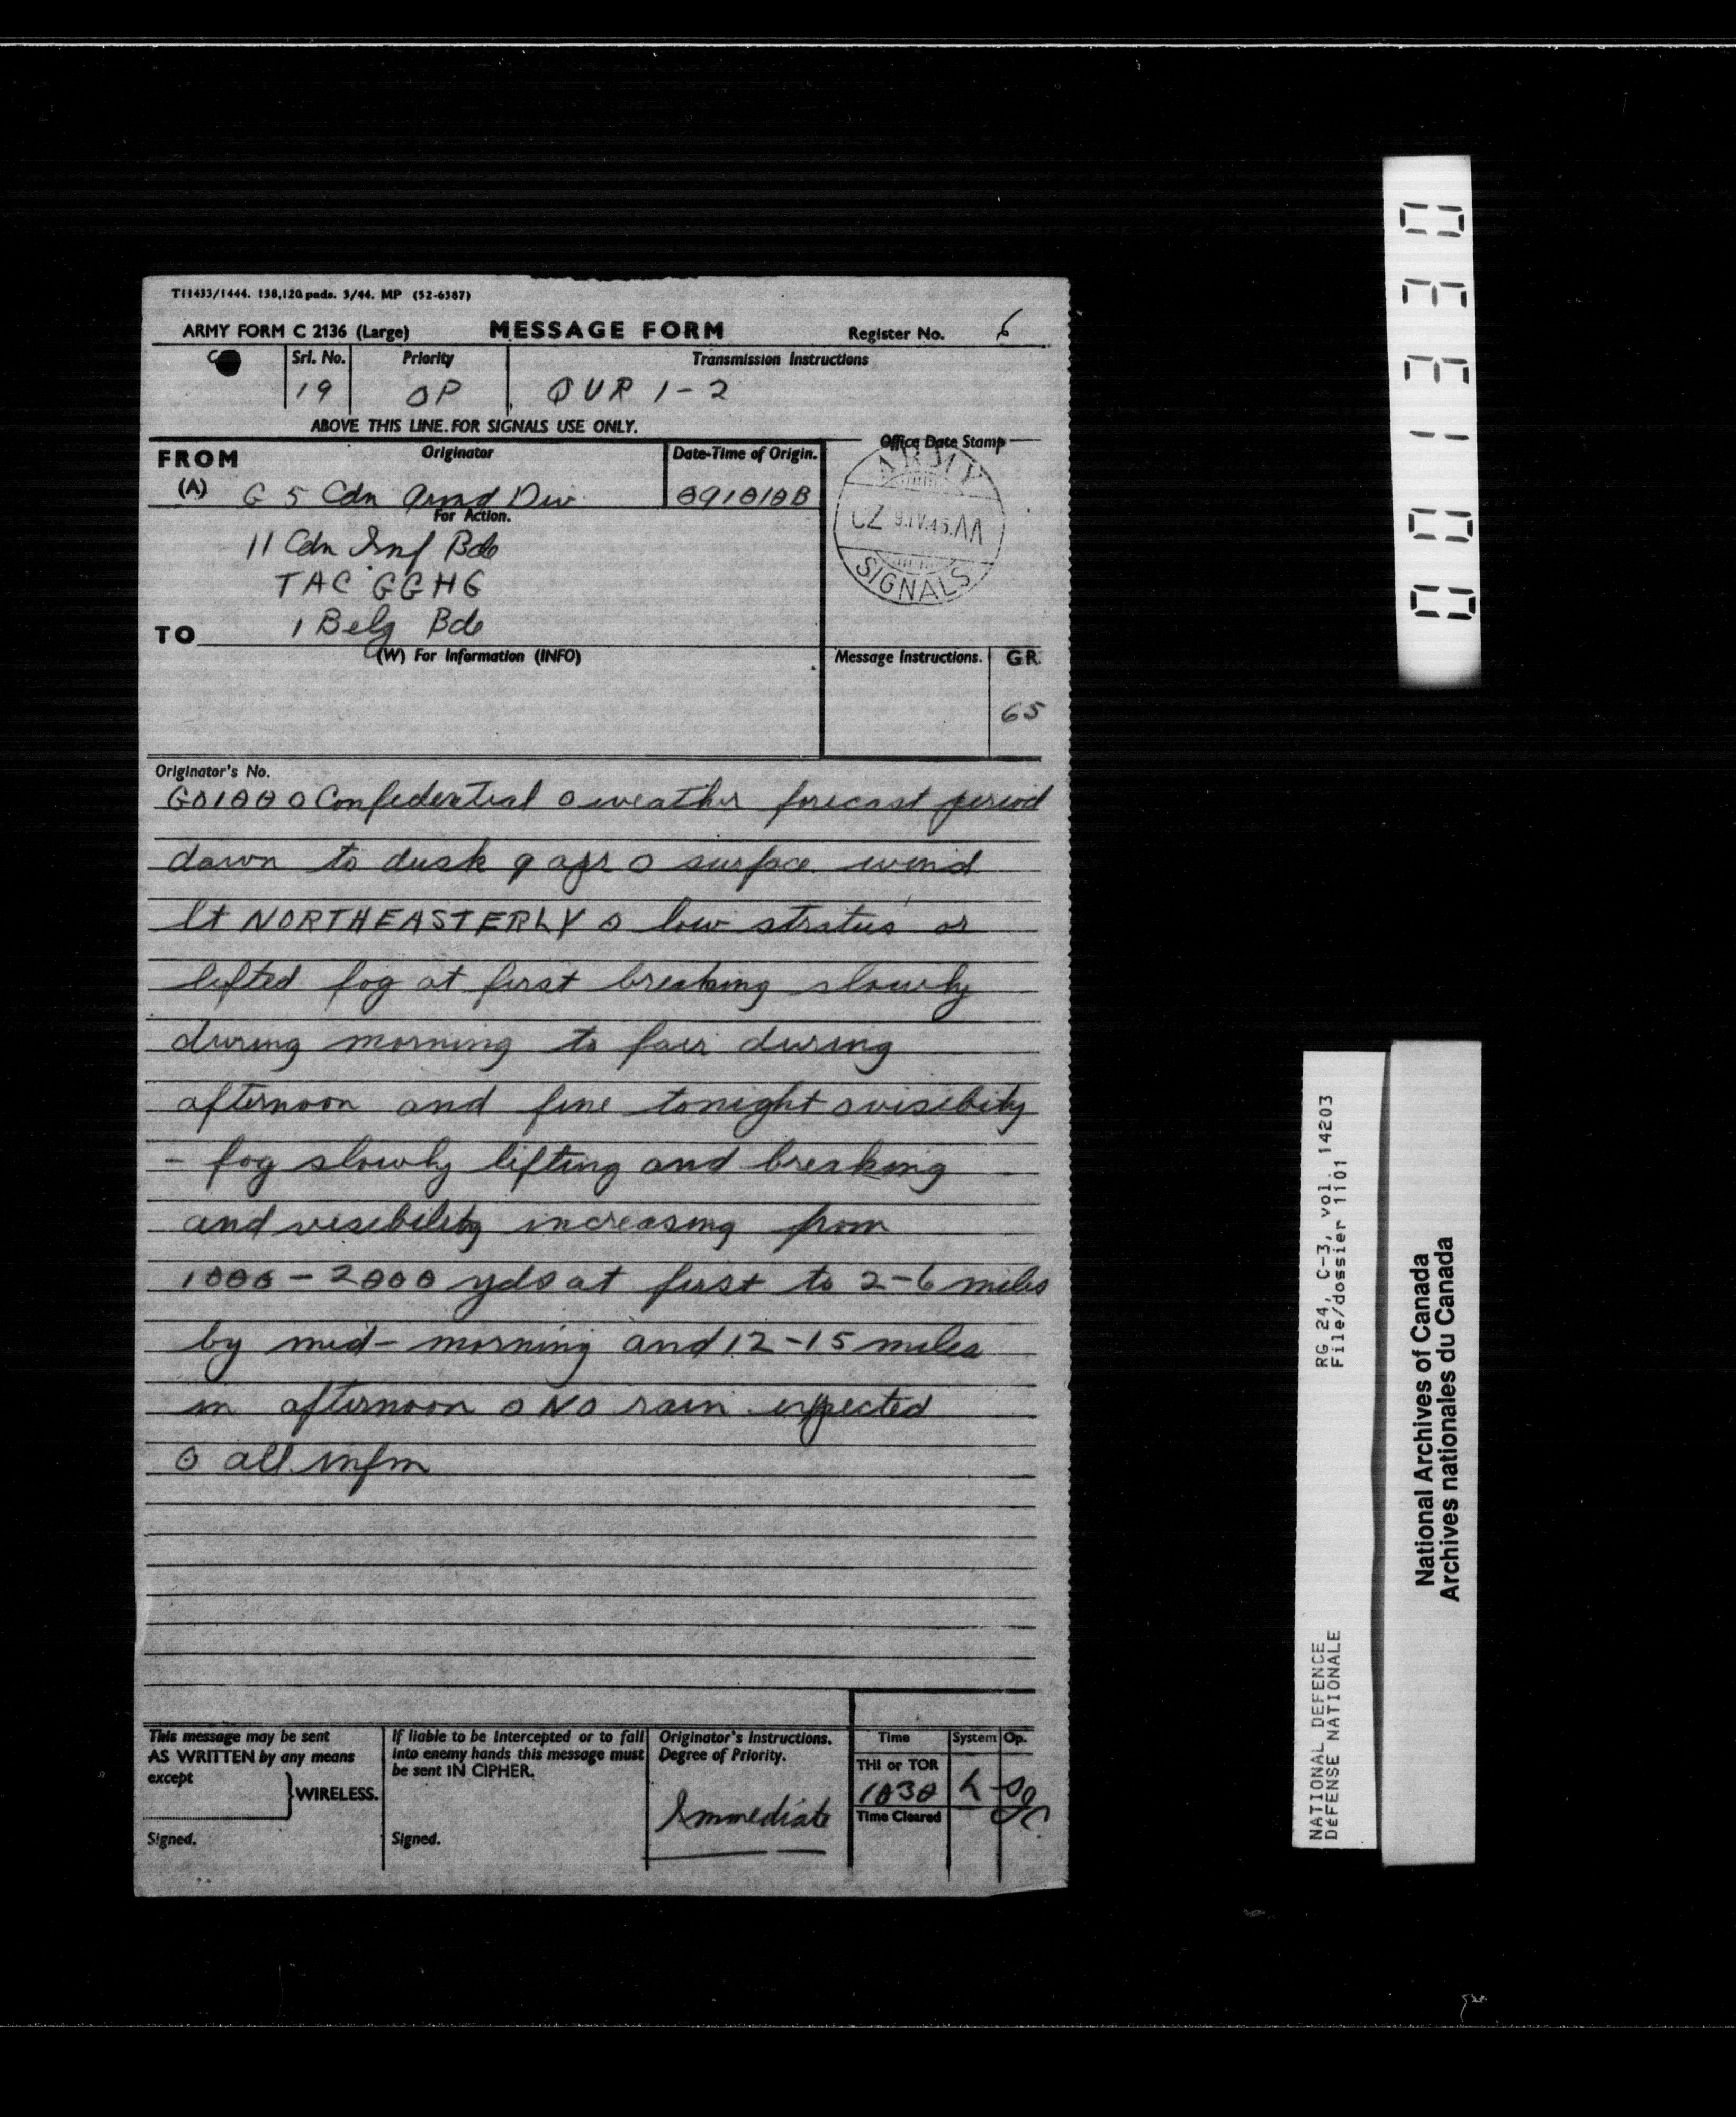 T11433/1444. 138,120 pads. 3/44. MP (52-6387)
ARMY FORM C 2136 (Large) MESSAGE FORM Register No. 6
Srl. No. Priority Transmission Instructions
19 OP QUR 1-2
ABOVE THIS LINE FOR SIGNALS USE ONLY.
FROM Originator Date-Time of Origin. Office Date Stamp
(A) G 5 Cdn Armd Div 091010B
ARMY
CZ 9.IV.45.
SIGNALS
For Action.
11 Cdn Inf Bde
TAC GGHG
TO 1 Belg Bde
(W) For Information (INFO) Message Instructions. GR
65
Originator's No.
GO1000 o Confedential o weather forecast period
dawn to dusk 9 apr o surface wind
lt NORTHEASTERLY o low stratus or
lifted fog at first breaking slowly
during morning to fair during
afternoon and fine tonight o visibity
- fog slowly lifting and breaking
and visibility increasing from
1000 - 2000 yds at first to 2-6 miles
by mid- morning and 12-15 miles
in afternoon o NO rain expected
o all infm
This message may be sent
AS WRITTEN by any means
except
WIRELESS.
Signed.
If liable to be intercepted or to fall
into enemy hands this message must
be sent IN CIPHER.
Signed.
Originator's Instructions.
Degree of Priority.
Immediate
Time System Op.
THI or TOR
1030 L
Time Cleared
00133 0
RG 24, C-3, vol. 14203
File/dossier 1101
NATIONAL DEFENCE
DÉFENSE NATIONALE
National Archives of Canada
Archives nationales du Canada